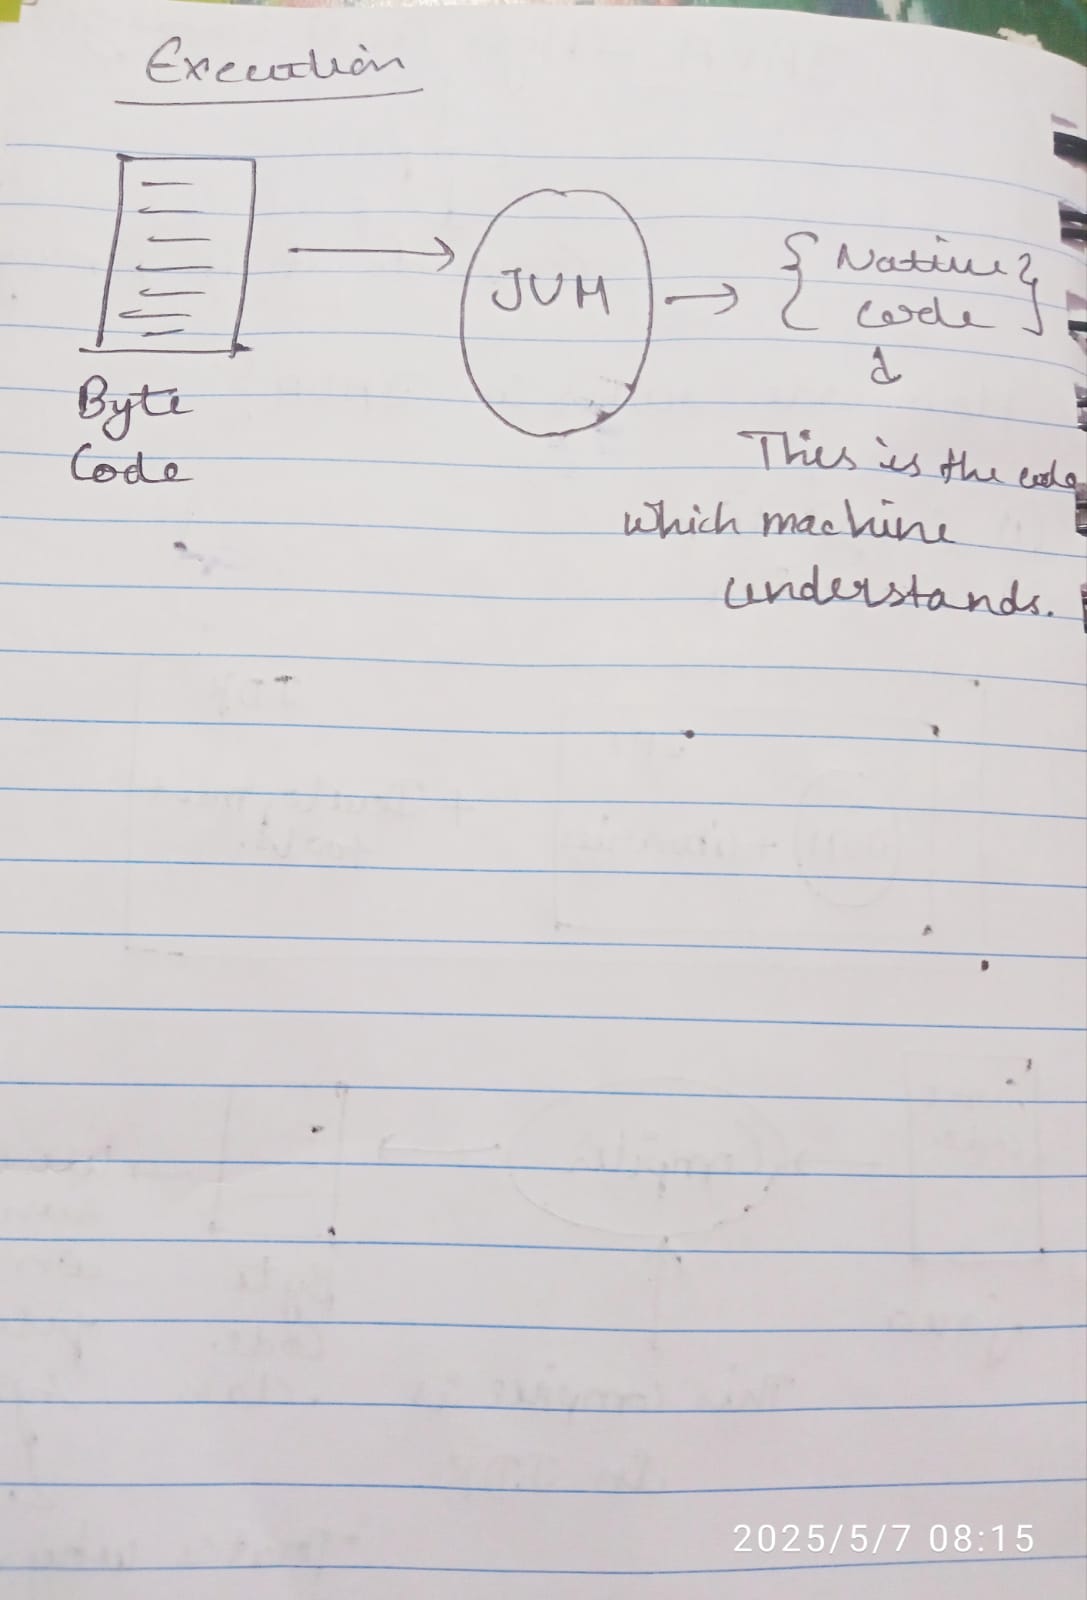 Execution
JVM
{ Native }
code
Byte
Code
This is the code
which machine
understands.
2025/5/7 08:15